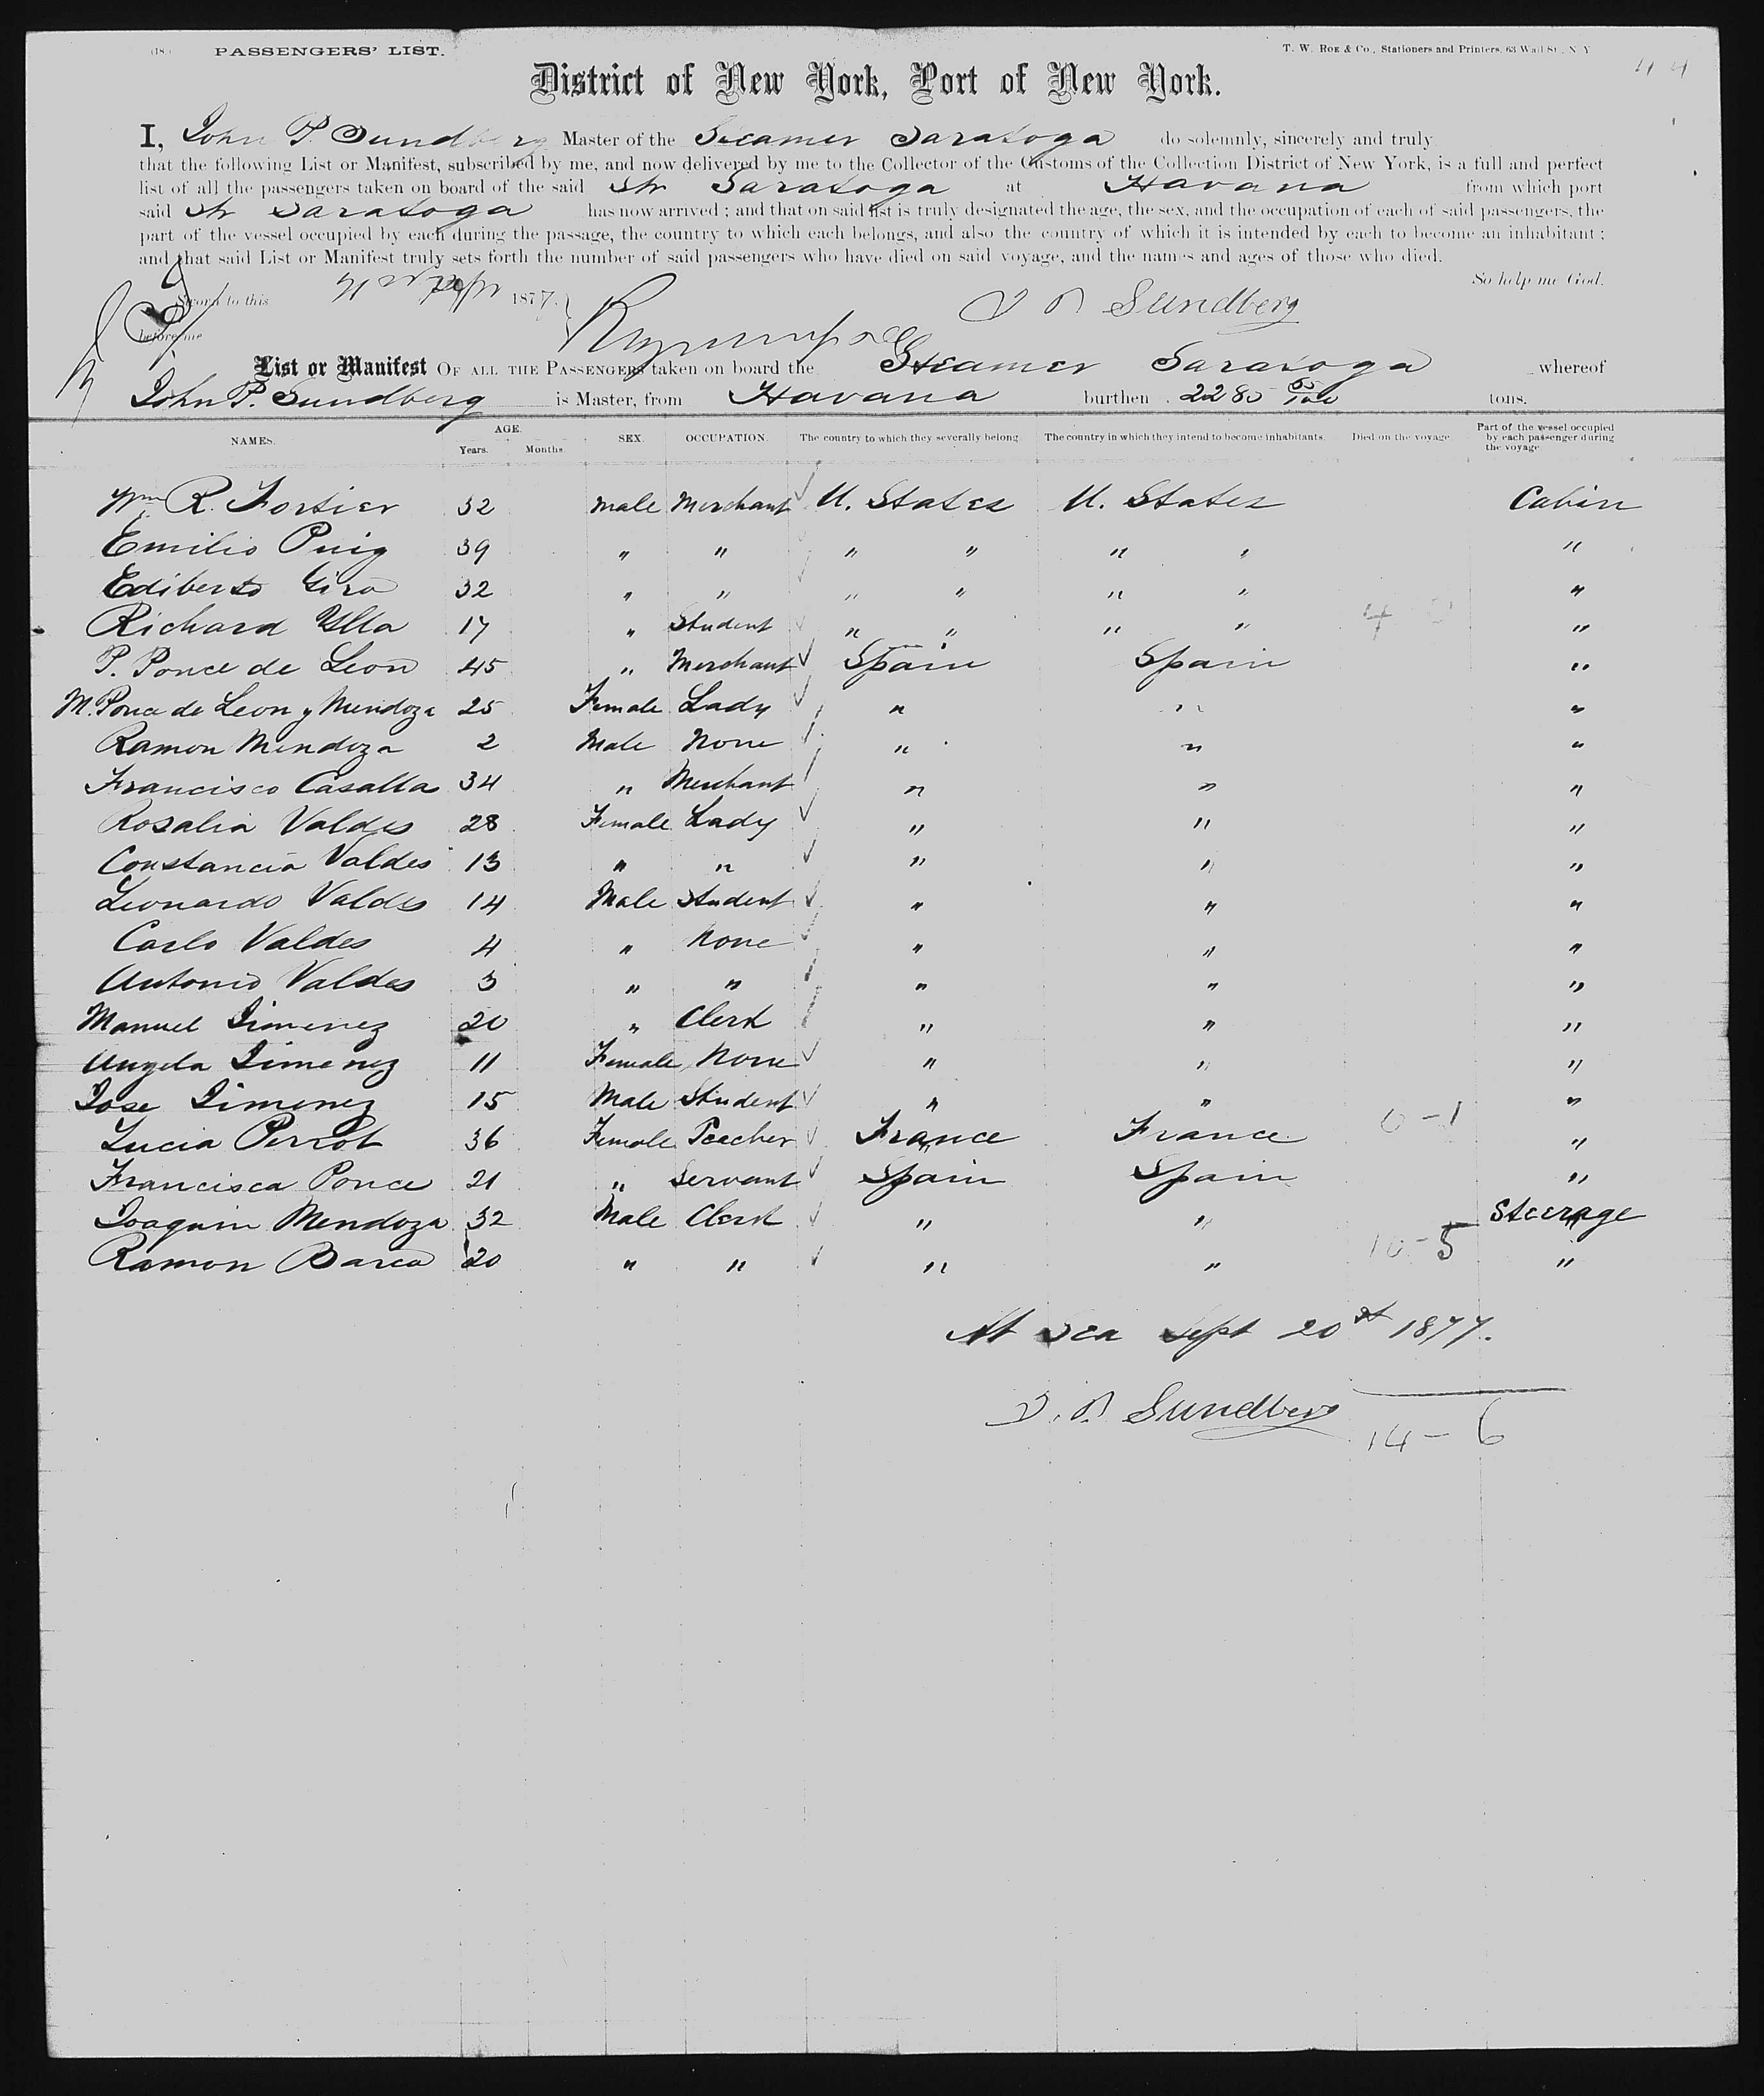 PASSENGERS' LIST.
T. W. ROE & Co., Stationers and Printers, 63 Wall St., N. Y.
44
District of New York, Port of New York.
I, John P. Sundberg Master of the Steamer Saratoga do solemnly, sincerely and truly
that the following List or Manifest, subscribed by me, and now delivered by me to the Collector of the Customs of the Collection District of New York, is a full and perfect
list of all the passengers taken on board of the said Str Saratoga at Havana from which port
said Str Saratoga has now arrived; and that on said list is truly designated the age, the sex, and the occupation of each of said passengers, the
part of the vessel occupied by each during the passage, the country to which each belongs, and also the country of which it is intended by each to become an inhabitant;
and that said List or Manifest truly sets forth the number of said passengers who have died on said voyage, and the names and ages of those who died.
So help me God.
Sworn to this 1877.
J P Sundberg
before me
List or Manifest OF ALL THE PASSENGERS taken on board the Steamer Saratoga whereof
John P. Sundberg is Master, from Havana burthen 2280 tons.
NAMES. AGE. Years. Months. SEX. OCCUPATION. The country to which they severally belong. The country in which they intend to become inhabitants. Died on the voyage. Part of the vessel occupied by each passenger during the voyage
Wm R. Fortier 32 Male Merchant U. States U. States Cabin
Emilio Puig 39 " " " " " " "
Ediberto Giro 32 " " " " " " "
Richard Ylla 17 " Student " " " " 4 0 "
P. Ponce de Leon 45 " Merchant Spain Spain "
M. Ponce de Leon y Mendoza 25 Female Lady " " "
Ramon Mendoza 2 Male None " " "
Francisco Casalla 34 " Merchant " " "
Rosalia Valdes 28 Female Lady " " "
Constancia Valdes 13 " " " " "
Leonardo Valdes 14 Male Student " " "
Carlo Valdes 4 " None " " "
Antonio Valdes 3 " " " " "
Manuel Jimenez 20 " Clerk " " "
Angela Jimenez 11 Female None " " "
Jose Jimenez 15 Male Student " " "
Lucia Perrot 36 Female Teacher France France 0-1 "
Francisca Ponce 21 " Servant Spain Spain "
Joaquin Mendoza 32 Male Clerk " " Steerage
Ramon Barca 20 " " " " 10-5 "
At Sea Sept 20st 1877.
J. P. Sundberg
14-6